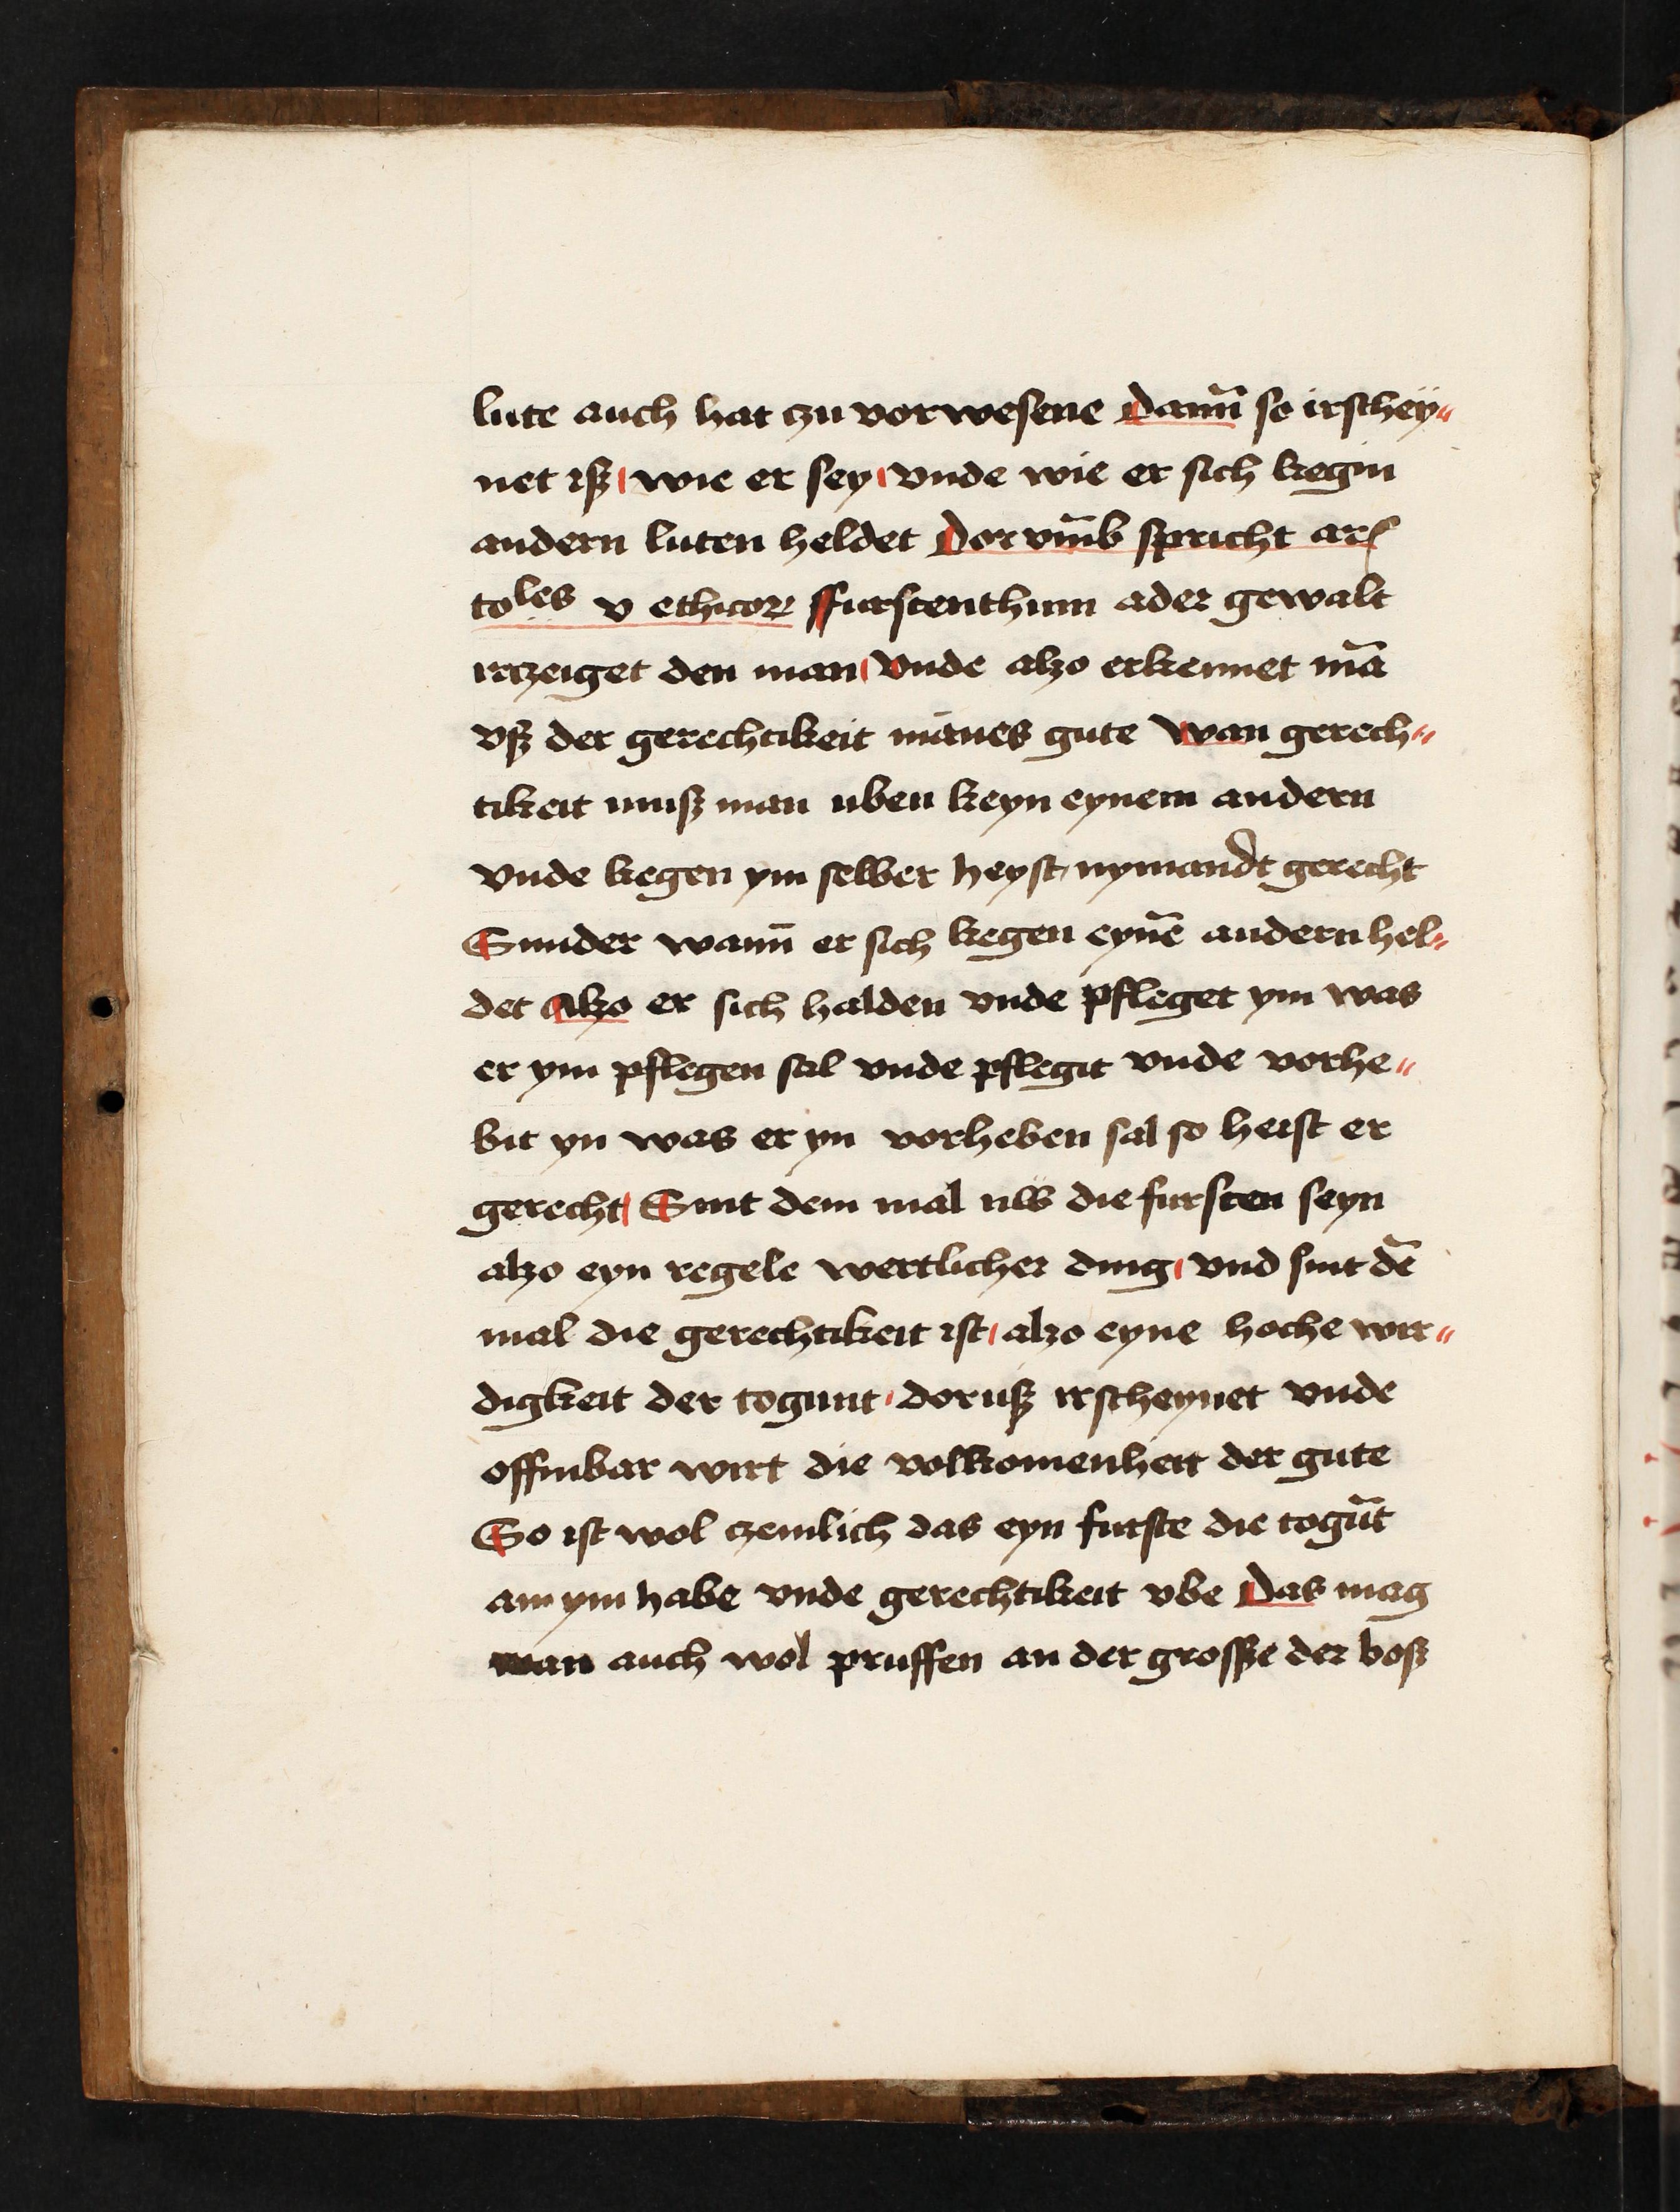 lute auch hat czu vorwesene Dann̄ so irscheÿ〟
net isz| wie er sey| vnde wie er sich kegin
andern luten heldet Dorvm̄b spricht aris
toles v ethicoꝝ ffurstenthum ader gewalt
irczeiget den man| Vnde alzo erkennet mā
vsz der gerechtikeit mānes gute Wan gerech〟
tikeit musz man uben keyn eynem andern
Vnde kegen ym selber heyst nymandt gerecht
Sunder wann̄ er sich kegen eynē andern hel〟
det Alzo er sich halden vnde pfleget ym was
er ym pflegen sal vnde pflegit vnde vorhe〟
bit yn was er yn vorheben sal so heist er
gerecht| Sint dem mal nw die fursten seyn
alzo eyn regele wertlicher ding| vnd sint dē
mal die gerechtikeit ist| alzo eyne hoche wir〟
digkeit der togunt| dorusz irscheynet vnde
offinbar wirt die volkomenheit der gute
So ist wol czemlich das eyn furste die togūt
am ym habe vnde gerechtikeit vbe Das mag
man auch wol pruffen an der grossze der bosz